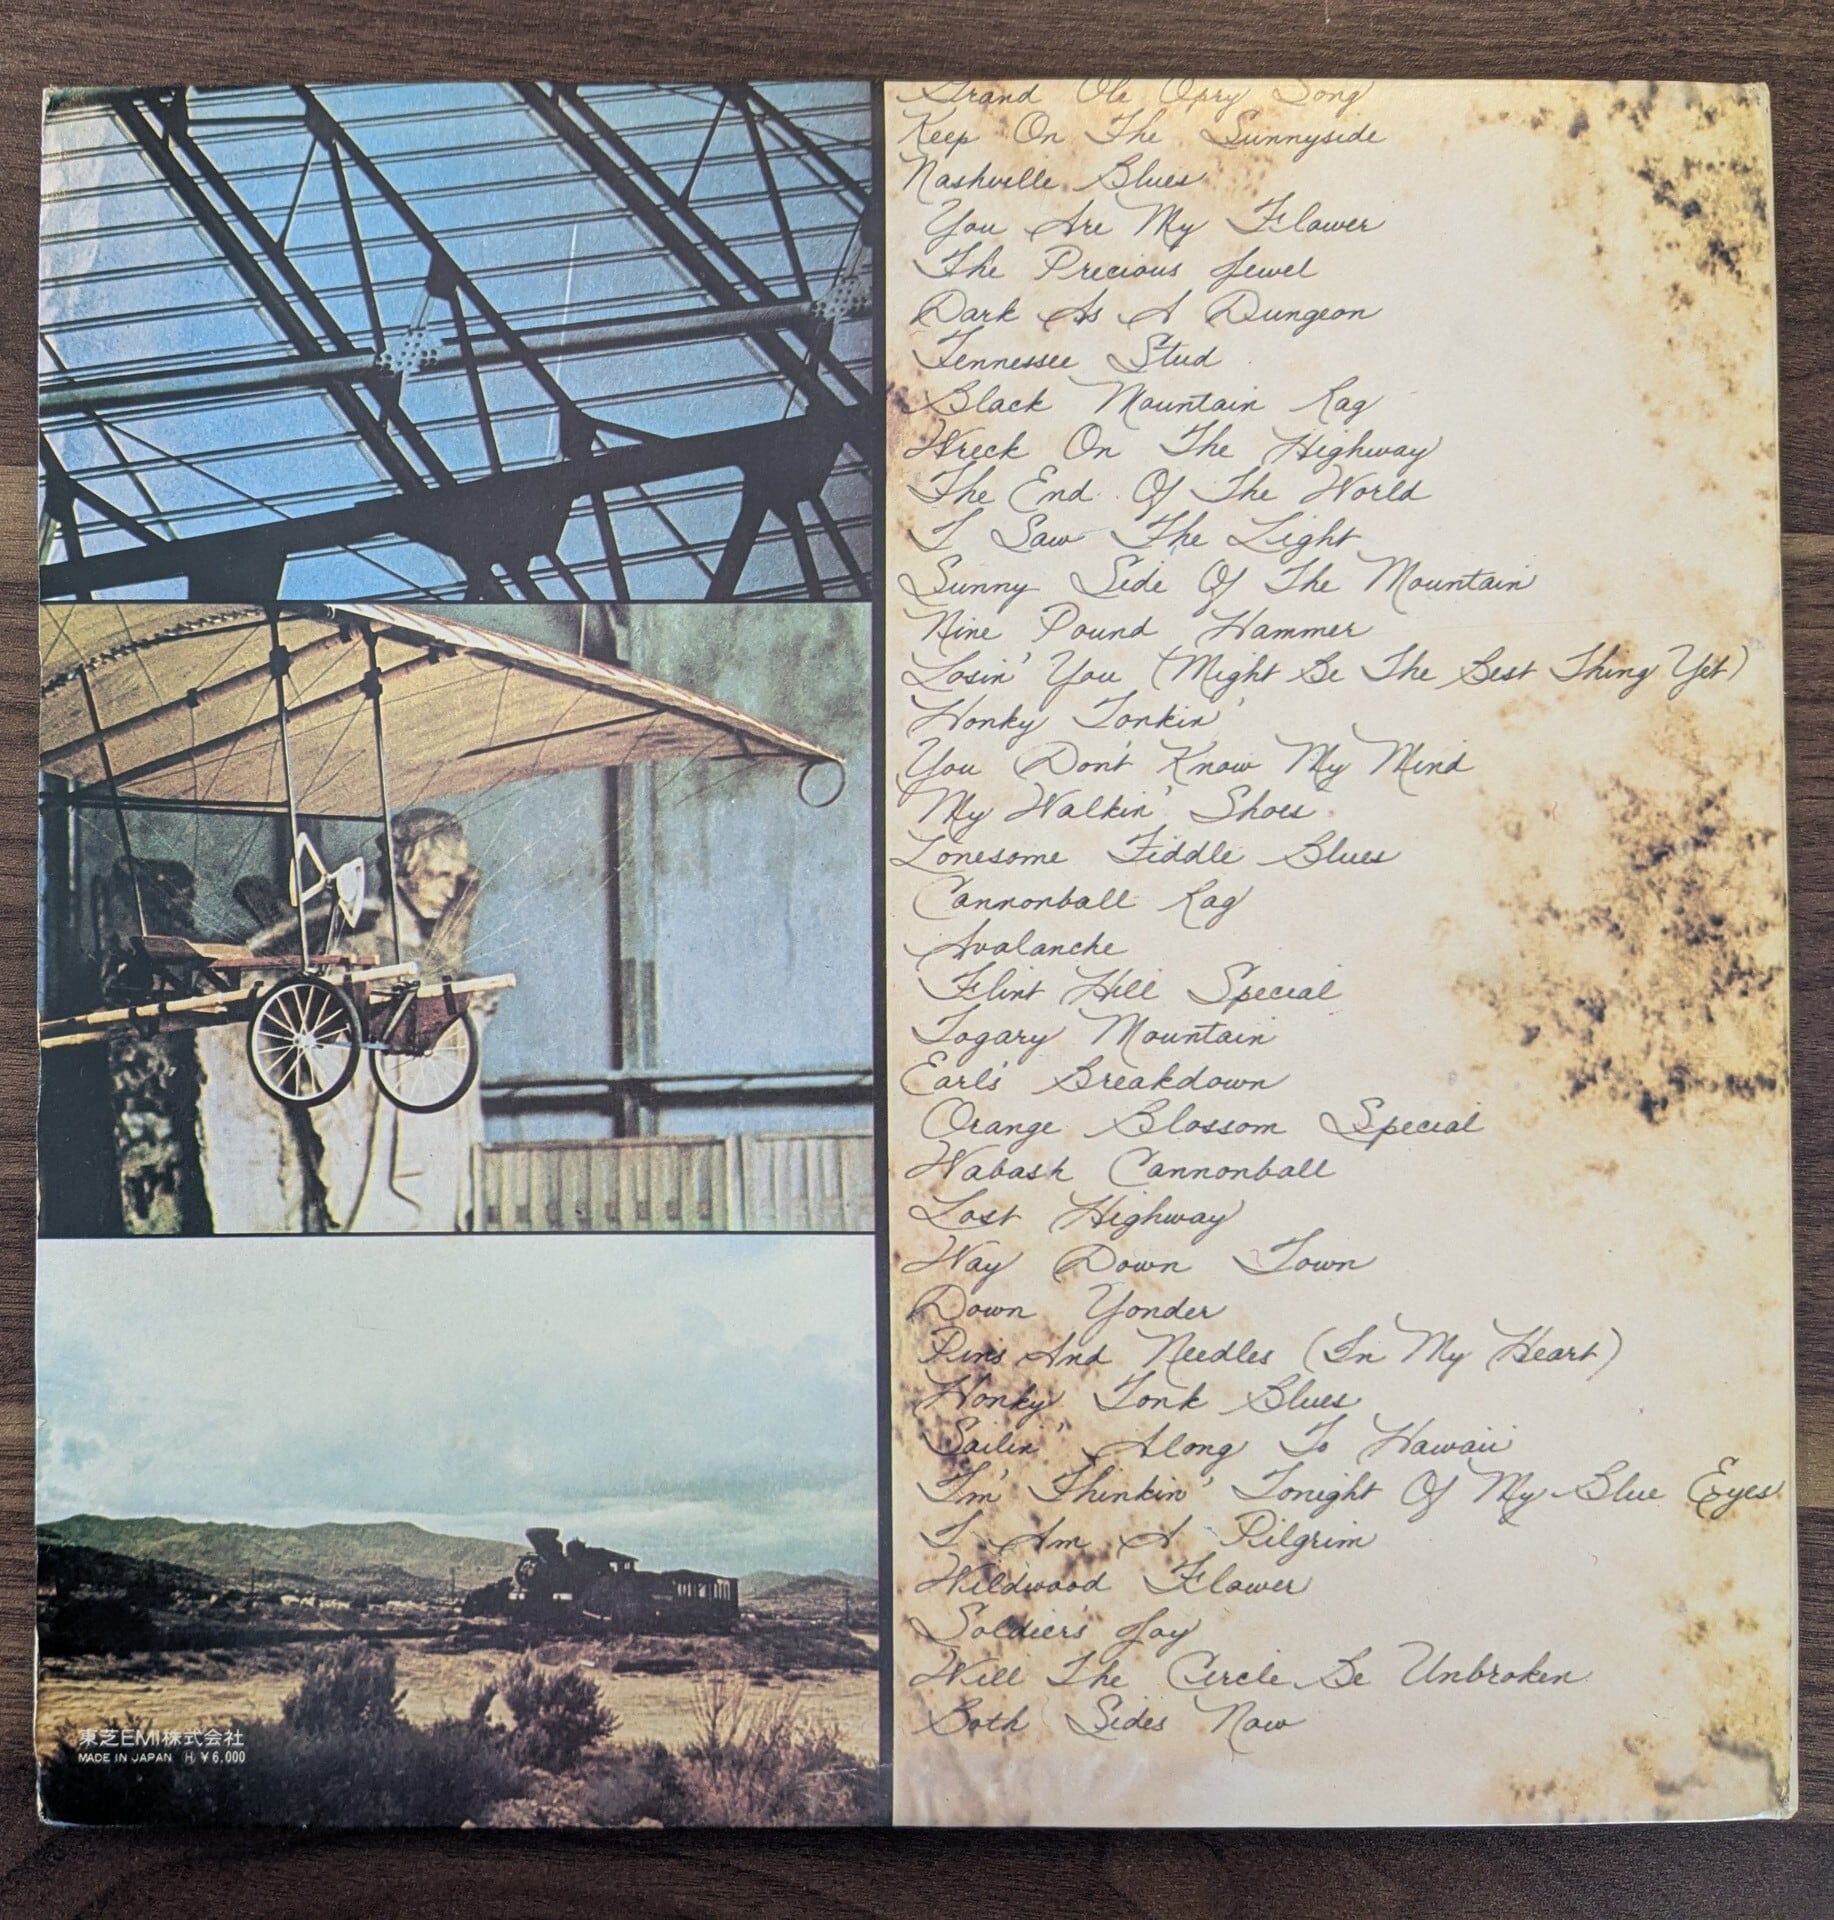 Grand Ole Opry Song
Keep On The Sunnyside
Nashville Blues
You Are My Flower
The Precious Jewel
Dark As A Dungeon
Tennessee Stud
Black Mountain Rag
Wreck On The Highway
The End Of The World
I Saw The Light
Sunny Side Of The Mountain
Nine Pound Hammer
Losin' You (Might Be The Best Thing Yet)
Honky Tonkin'
You Don't Know My Mind
My Walkin' Shoes
Lonesome Fiddle Blues
Cannonball Rag
Avalanche
Flint Hill Special
Togary Mountain
Earl's Breakdown
Orange Blossom Special
Wabash Cannonball
Lost Highway
Way Down Town
Down Yonder
Pins And Needles (In My Heart)
Honky Tonk Blues
Sailin' Along To Hawaii
I'm Thinkin' Tonight Of My Blue Eyes
I Am A Pilgrim
Wildwood Flower
Soldier's Joy
Will The Circle Be Unbroken
Both Sides Now
東芝EMI株式会社
MADE IN JAPAN Ⓗ ¥6,000